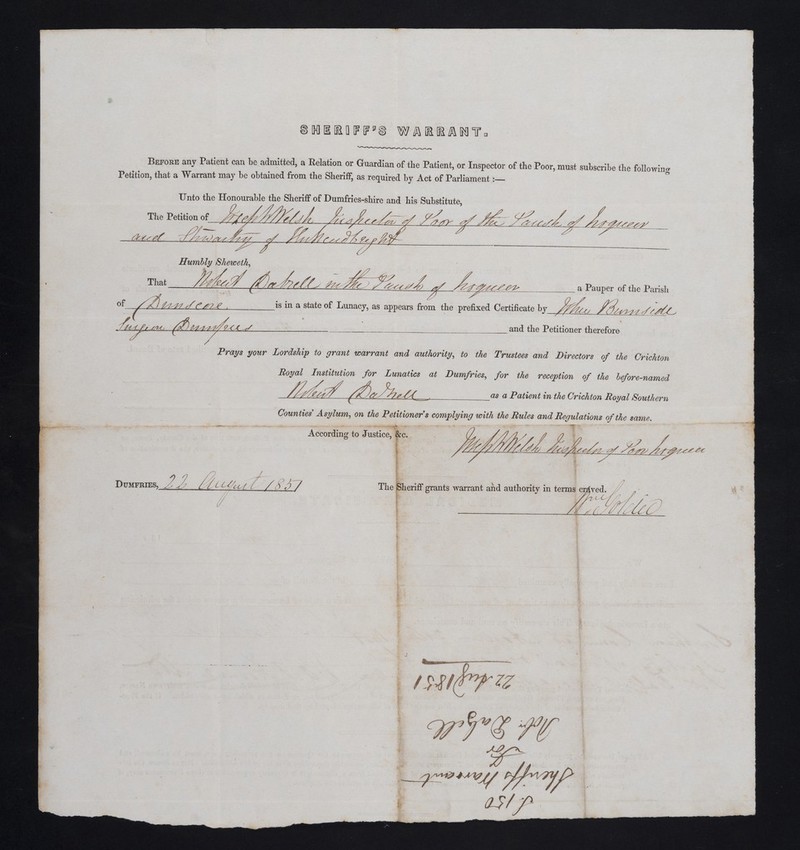 SHERIFF'S WARRANT.
BEFORE any Patient can be admitted, a Relation or Guardian of the Patient, or Inspector of the Poor, must subscribe the following
Petition, that a Warrant may be obtained from the Sheriff, as required by Act of Parliament :—
Unto the Honourable the Sheriff of Dumfries-shire and his Substitute,
The Petition of Joseph Welsh Inspector of Poor of the Parish of Troqueer
and Stewartry of Kirkcudbright
Humbly Sheweth,
That Robert Dalzell in the Parish of Troqueer a Pauper of the Parish
of Dunscore is in a state of Lunacy, as appears from the prefixed Certificate by John Burnside
Surgeon Dumfries and the Petitioner therefore
Prays your Lordship to grant warrant and authority, to the Trustees and Directors of the Crichton
Royal Institution for Lunatics at Dumfries, for the reception of the before-named
Robert Dalzell as a Patient in the Crichton Royal Southern
Counties' Asylum, on the Petitioner's complying with the Rules and Regulations of the same.
According to Justice, &c.
Joseph Welsh Inspector of Poor Troqueer
DUMFRIES, 22 August 1851
The Sheriff grants warrant and authority in terms craved.
Wm Goldie
S. 150
Sheriffs Warrant
for
Robt Dalzell
22 Augt 1851